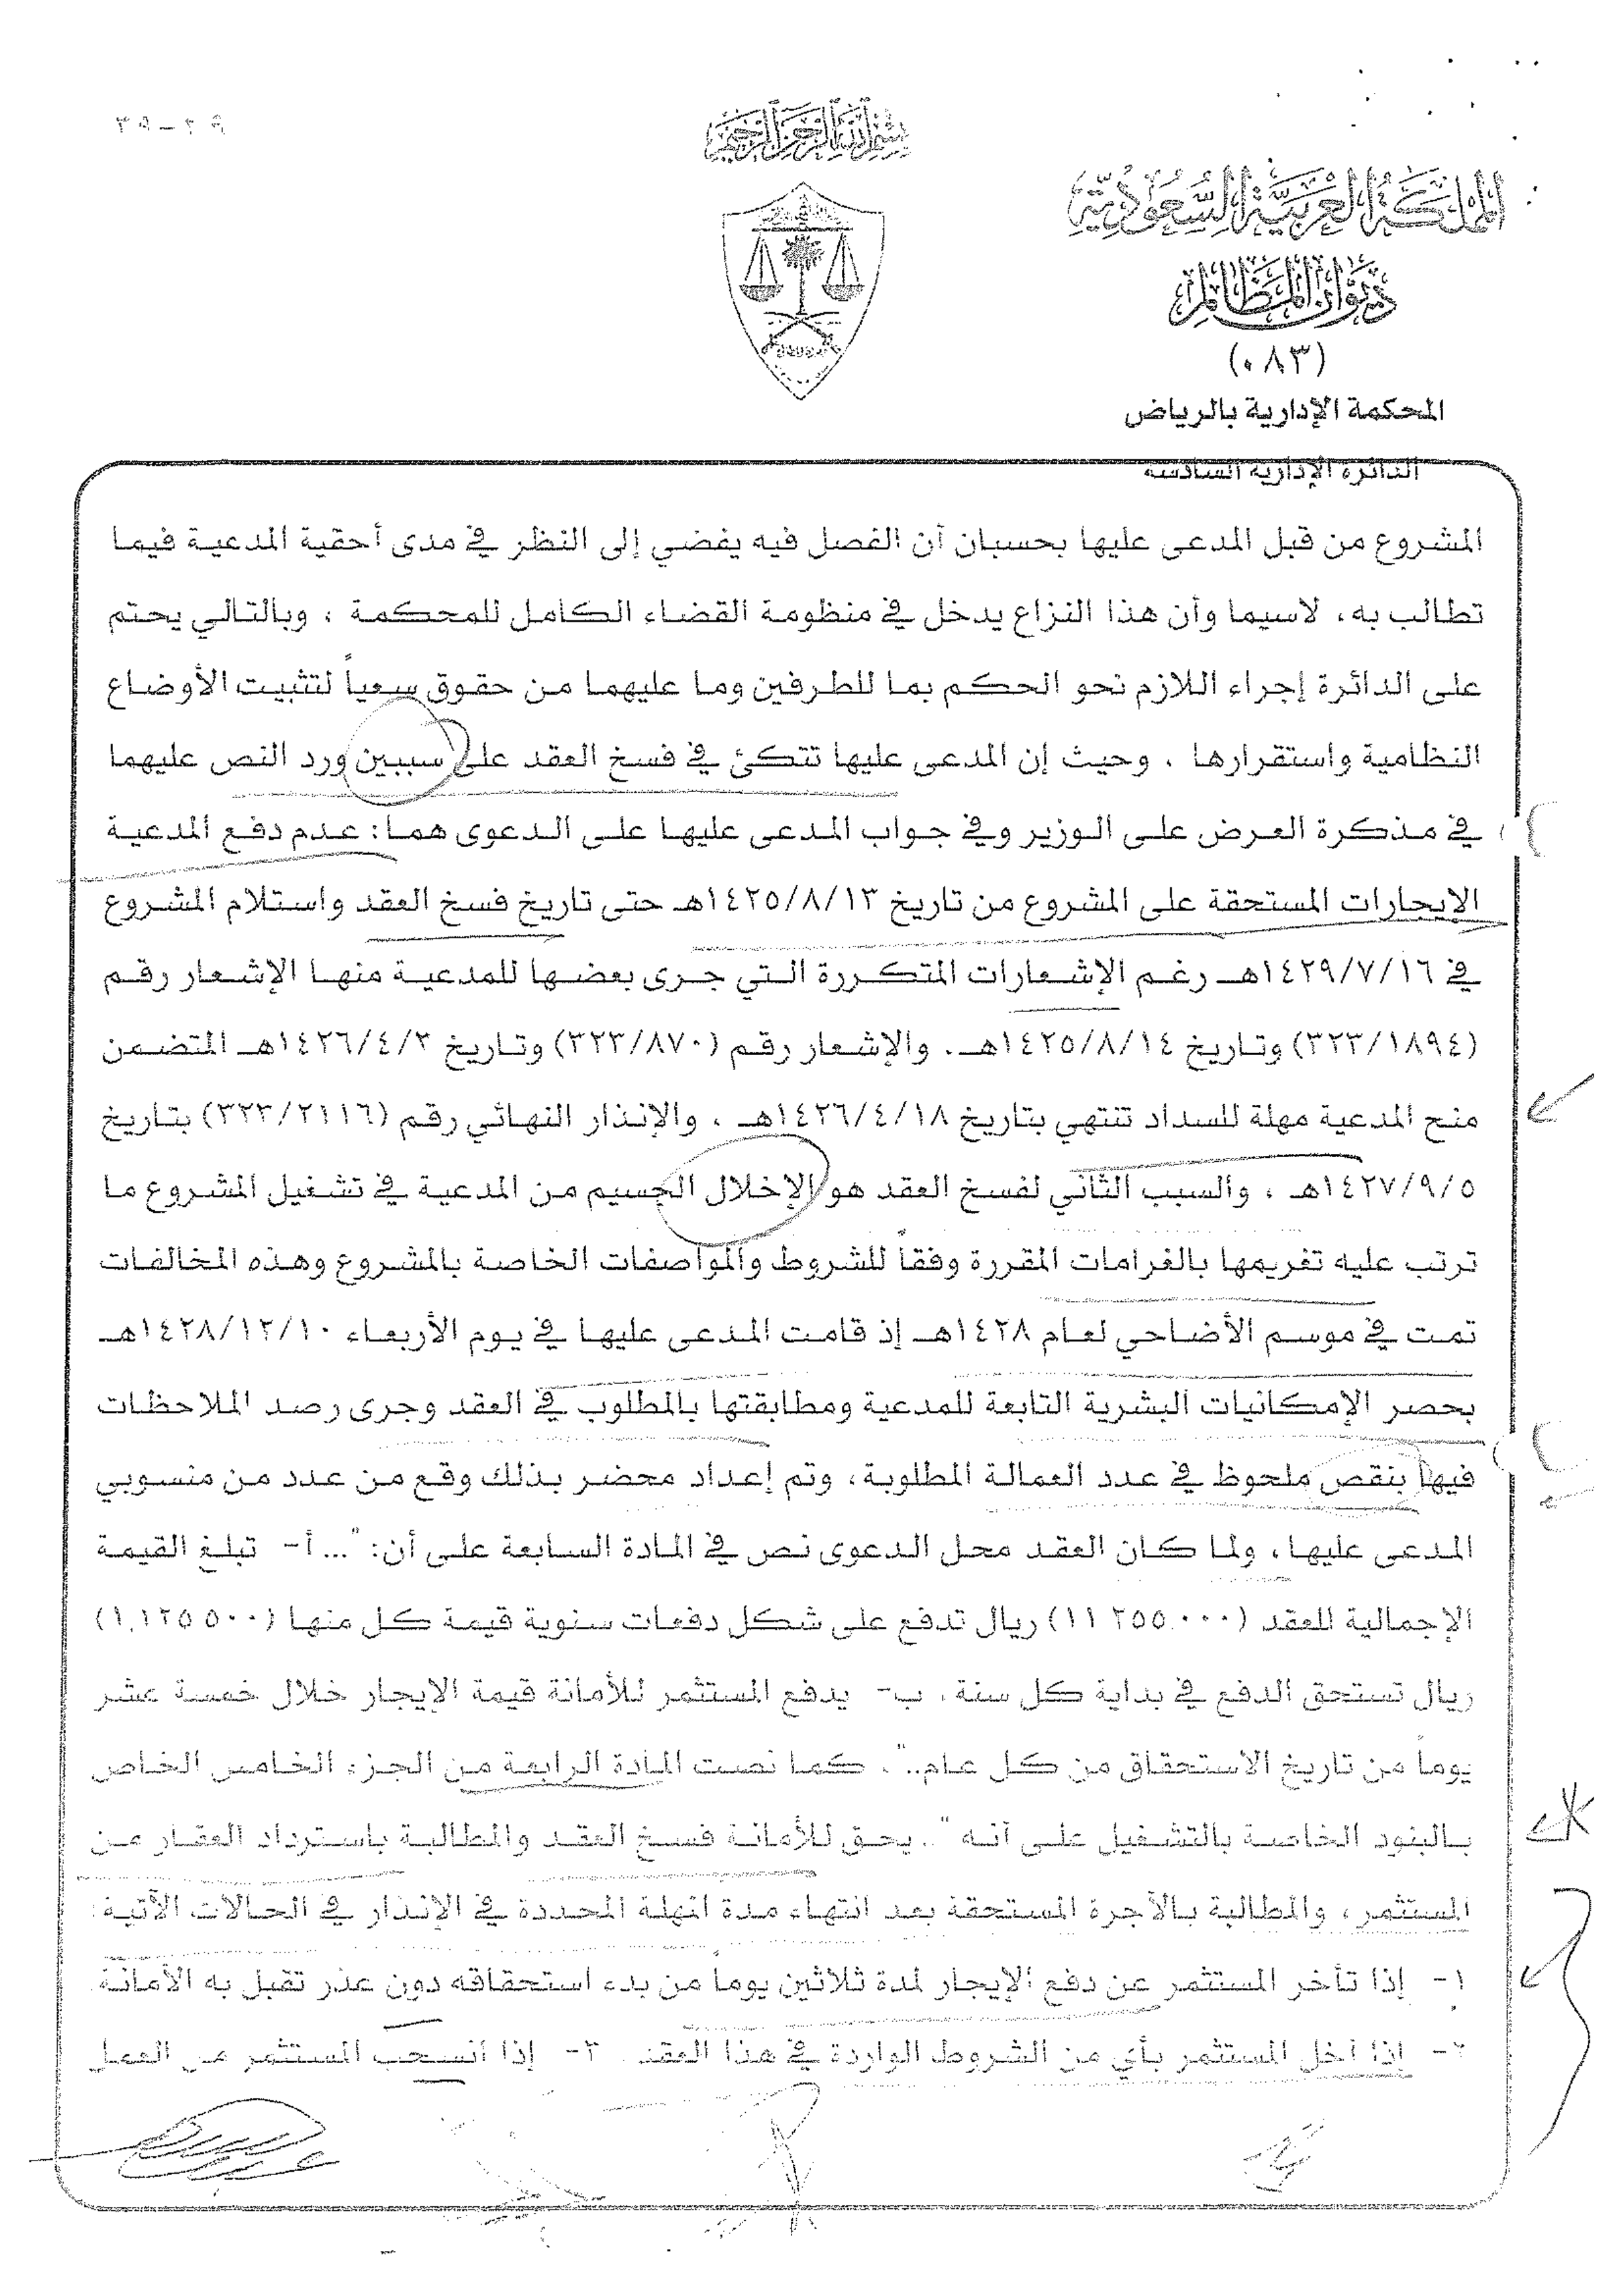 بسم الله الرحمن الرحيم
المملكة العربية السعودية
ديوان المظالم
(٠٨٣)
المحكمة الإدارية بالرياض
الدائرة الإدارية السادسة
المشروع من قبل المدعى عليها بحسبان أن الفصل فيه يفضي إلى النظر في مدى أحقية المدعية فيما
تطالب به، لاسيما وأن هذا النزاع يدخل في منظومة القضاء الكامل للمحكمة ، وبالتالي يحتم
على الدائرة إجراء اللازم نحو الحكم بما للطرفين وما عليهما من حقوق سعياً لتثبيت الأوضاع
النظامية واستقرارها . وحيث إن المدعى عليها تتكئ في فسخ العقد على سببين ورد النص عليهما
في مذكرة العرض على الوزير وفي جواب المدعى عليها على الدعوى هما: عدم دفع المدعية
الايجارات المستحقة على المشروع من تاريخ ١٤٢٥/٨/١٣هـ حتى تاريخ فسخ العقد واستلام المشروع
في ١٤٢٩/٧/١٦هـ رغم الإشعارات المتكررة التي جرى بعضها للمدعية منها الإشعار رقم
(٣٢٣/١٨٩٤) وتاريخ ١٤٢٥/٨/١٤هـ. والإشعار رقم (٣٢٣/٨٧٠) وتاريخ ١٤٢٦/٤/٣هـ المتضمن
منح المدعية مهلة للسداد تنتهي بتاريخ ١٤٢٦/٤/١٨هـ ، والإنذار النهائي رقم (٣٢٣/٢١١٦) بتاريخ
١٤٢٧/٩/٥هـ ، والسبب الثاني لفسخ العقد هو الإخلال الجسيم من المدعية في تشغيل المشروع ما
ترتب عليه تغريمها بالغرامات المقررة وفقاً للشروط والمواصفات الخاصة بالمشروع وهذه المخالفات
تمت في موسم الأضاحي لعام ١٤٢٨هـ إذ قامت المدعى عليها في يوم الأربعاء ١٤٢٨/١٢/١٠هـ
بحصر الإمكانيات البشرية التابعة للمدعية ومطابقتها بالمطلوب في العقد وجرى رصد الملاحظات
فيها بنقص ملحوظ في عدد العمالة المطلوبة، وتم إعداد محضر بذلك وقع من عدد من منسوبي
المدعى عليها، ولما كان العقد محل الدعوى نص في المادة السابعة على أن: "... أ- تبلغ القيمة
الإجمالية للعقد (١١٢٥٥٠٠٠) ريال تدفع على شكل دفعات سنوية قيمة كل منها (١,١٢٥٥٠٠)
ريال تستحق الدفع في بداية كل سنة. ب- يدفع المستثمر للأمانة قيمة الإيجار خلال خمسة عشر
يوماً من تاريخ الاستحقاق من كل عام..". كما نصت المادة الرابعة من الجزء الخامس الخاص
بالبنود الخاصة بالتشغيل على أنه ".. يحق للأمانة فسخ العقد والمطالبة باسترداد العقار من
المستثمر، والمطالبة بالأجرة المستحقة بعد انتهاء مدة المهلة المحددة في الإنذار في الحالات الآتية:
١- إذا تأخر المستثمر عن دفع الإيجار لمدة ثلاثين يوماً من بدء استحقاقه دون عذر تقبل به الأمانة.
٢- إذا أخل المستثمر بأي من الشروط الواردة في هذا العقد. ٣- إذا انسحب المستثمر من العمل